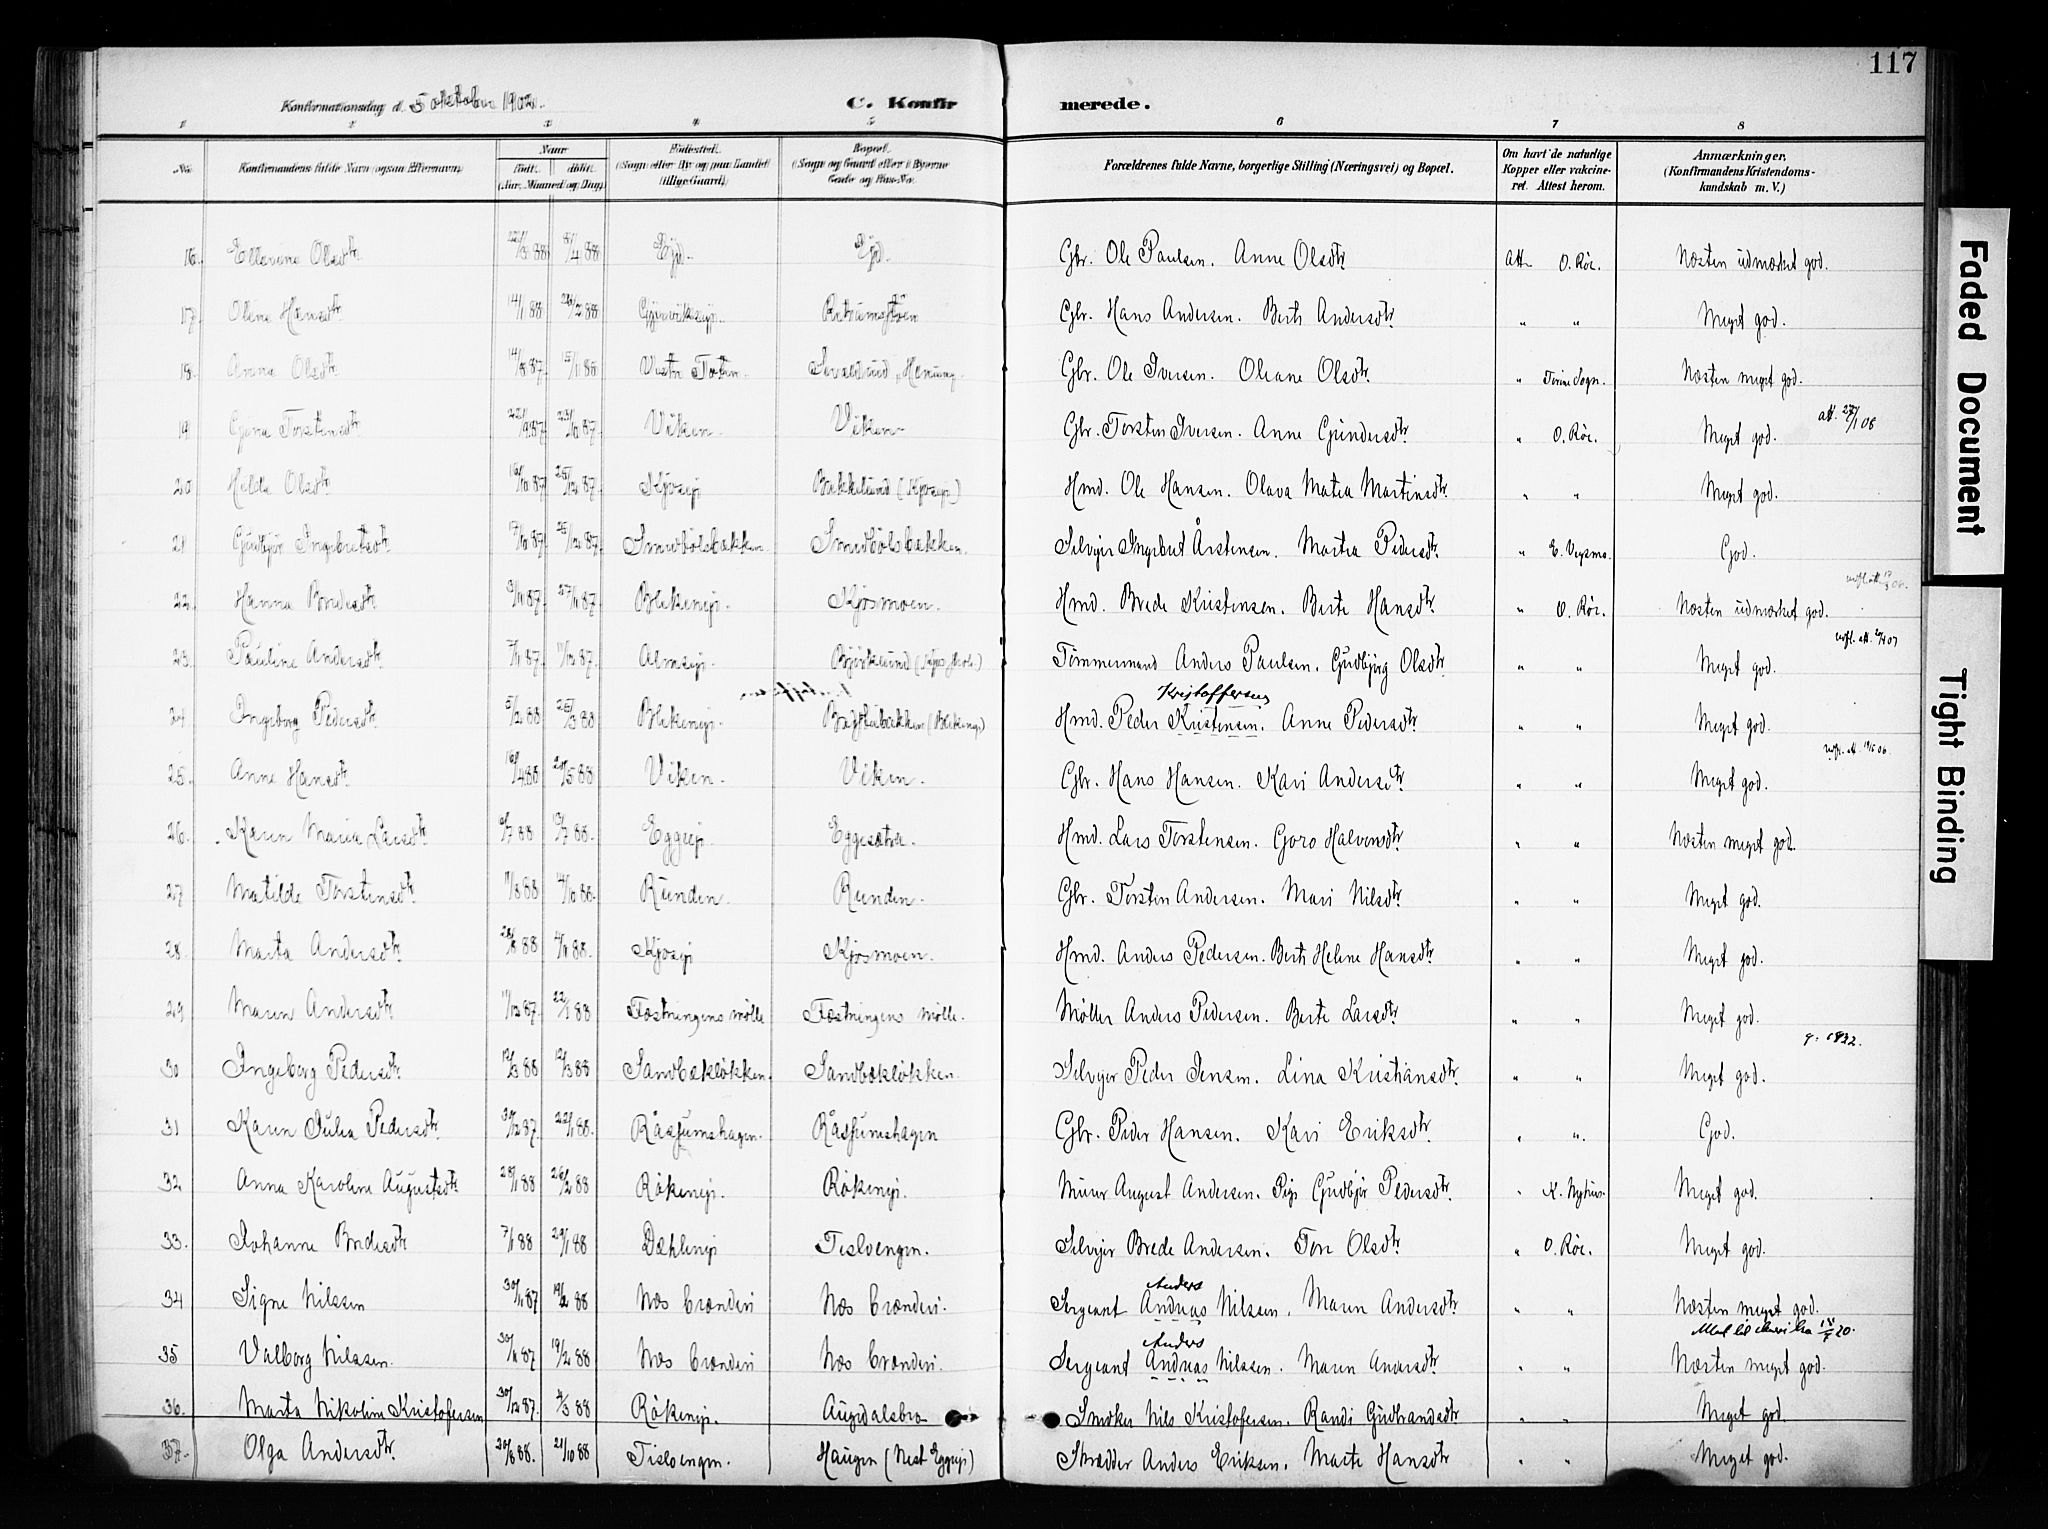 117
Konfirmationsdag d. 5 oktober 1902.
C. Konfirmerede.
1 2 3 4 5 6 7 8
No. Konfirmandens fulde Navn (ogsaa Efternavn). Naar født. døbt. (Aar, Maaned og Dag). Fødested. (Sogn eller By og paa Landet tillige Gaard). Bopæl. (Sogn og Gaard eller i Byerne Gade og Hus-No. Forældrenes fulde Navne, borgerlige Stilling (Næringsvei) og Bopæl. Om havt de naturlige Kopper eller vakcineret. Attest herom. Anmærkninger. (Konfirmandens Kristendomskundskab m. V.)
16. Ellevine Olsdtr. Gbr. Ole Paulsen. Anne Olsdtr. Att. O. Röe. Næsten udmærket god.
17 Oline Hansdtr. 14/1 88 26/2 88 Gjerviksej. Gbr. Hans Andersen. Berte Andersdtr. " " Meget god.
18. Anna Olsdtr. 14/8 87. Vestre Toten. Gbr. Ole Iversen. Oleane Olsdtr. " Næsten meget god.
19 Torstensdtr 22/9 87. 23/10 87. Viken. Viken. Gbr. Torsten Iversen. Anne Gundersdtr. " O. Röe. Meget god. att. 27/1 06
20 Hilda Olsdtr. 16/10 87 25/12 87. Kjosejs Bakkelund (Kjosejs) Hmd. Ole Hansen. Olava Matea Martinsdtr. " " Meget god.
21 Gudbjör Ingebretsdtr. 17/10 87. 25/12 87. Smedbölsbakken. Smedbölsbakken. Selvejer Ingebret Årstensen. Martea Pedersdtr. " E. Vegsmo. God.
22. Hanna Bredesdtr 9/11 87. 27/11 87. Blekenejs. Kjosmoen. Hmd. Brede Kristensen. Berte Hansdtr. " O. Röe. Næsten udmærket god.
23. Pauline Andersdtr. 7/11 87. 11/12 87. Almsejs. Björklund Tömmermand Anders Paulsen. Gudbjörg Olsdtr. " " Meget god.
Kristoffersen
24 Ingeborg Pedersdtr. 5/2 88 25/3 88 Blekenejs. (Blekenejs) Hmd. Peder Kristensen. Anne Pedersdtr. " " Meget god.
25. Anne Hansdtr. 16/4 88 20/5 88 Viken. Viken. Gbr. Hans Hansen. Kari Andersdtr. " " Meget god.
26. Karen Maria Larsdtr. 6/7 88 Eggeejs. Eggesætra. Hmd. Lars Torstensen. Goro Halvorsdtr. " " Næsten meget god.
27 Matilde Torstensdtr. 11/8 88 14/10 88. Runden. Runden. Gbr. Torsten Andersen. Mari Nilsdtr. " " Meget god.
28. Marta Andersdtr. 28/8 88 4/11 88. Kjosejs Kjosmoen. Hmd. Anders Pedersen. Berte Helene Hansdtr. " " Meget god.
29 Maren Andersdtr 11/12 87. 22/1 88 Fæstningens mölle Fæstningens mölle. Möller Anders Pedersen. Berte Larsdtr. " " Meget god.
g. 1932.
30 Ingeborg Pedersdtr. 12/3 88 12/3 88 Sandbæklökken. Sandbæklökken. Selvejer Peder Jensen. Lina Kristiansdtr. " " Meget god.
31 Karen Julia Pedersdtr. 30/12 87 22/1 88. Råssumshagen. Råssumshagen Gbr. Peder Hansen. Kari Eriksdtr. " " God.
32 Anna Karoline Augustsdtr. 28/1 88 26/2 88 Rökenejs. Rökenejs. Murer August Andersen. Pige Gudbjör Pedersdtr. " K. Nyhus. Meget god.
33. Johanne Bredesdtr 7/1 88 29/1 88 Dæhlenejs Tisloengen. Selvejer Brede Andersen. Tore Olsdtr. " O. Röe. Meget god.
Anders
34 Signe Nilssen 30/11 87 19/2 88 Næs brænderi Næs brænderi. Sergeant Andreas Nilssen. Maren Andersdtr " " Næsten meget god.
Anders
35 Valborg Nilssen. 30/11 87 19/2 88 Næs brænderi Næs brænderi. Sergeant Andreas Nilssen. Maren Andersdtr " " Næsten meget god.
36. Marta Nikoline Kristofersen 30/12 87. 4/3 88 Rökenejs. Augedalsbro Smöker Nils Kristofersen. Randi Gudbrandsdtr " " Meget god.
37. Olga Andersdtr. 20/8 88. 21/10 88 Tisloengen. Haugen (Nest Eggejs) Skrædder Anders Eriksen. Marte Hansdtr " " Meget god.
Faded Document
Tight Binding